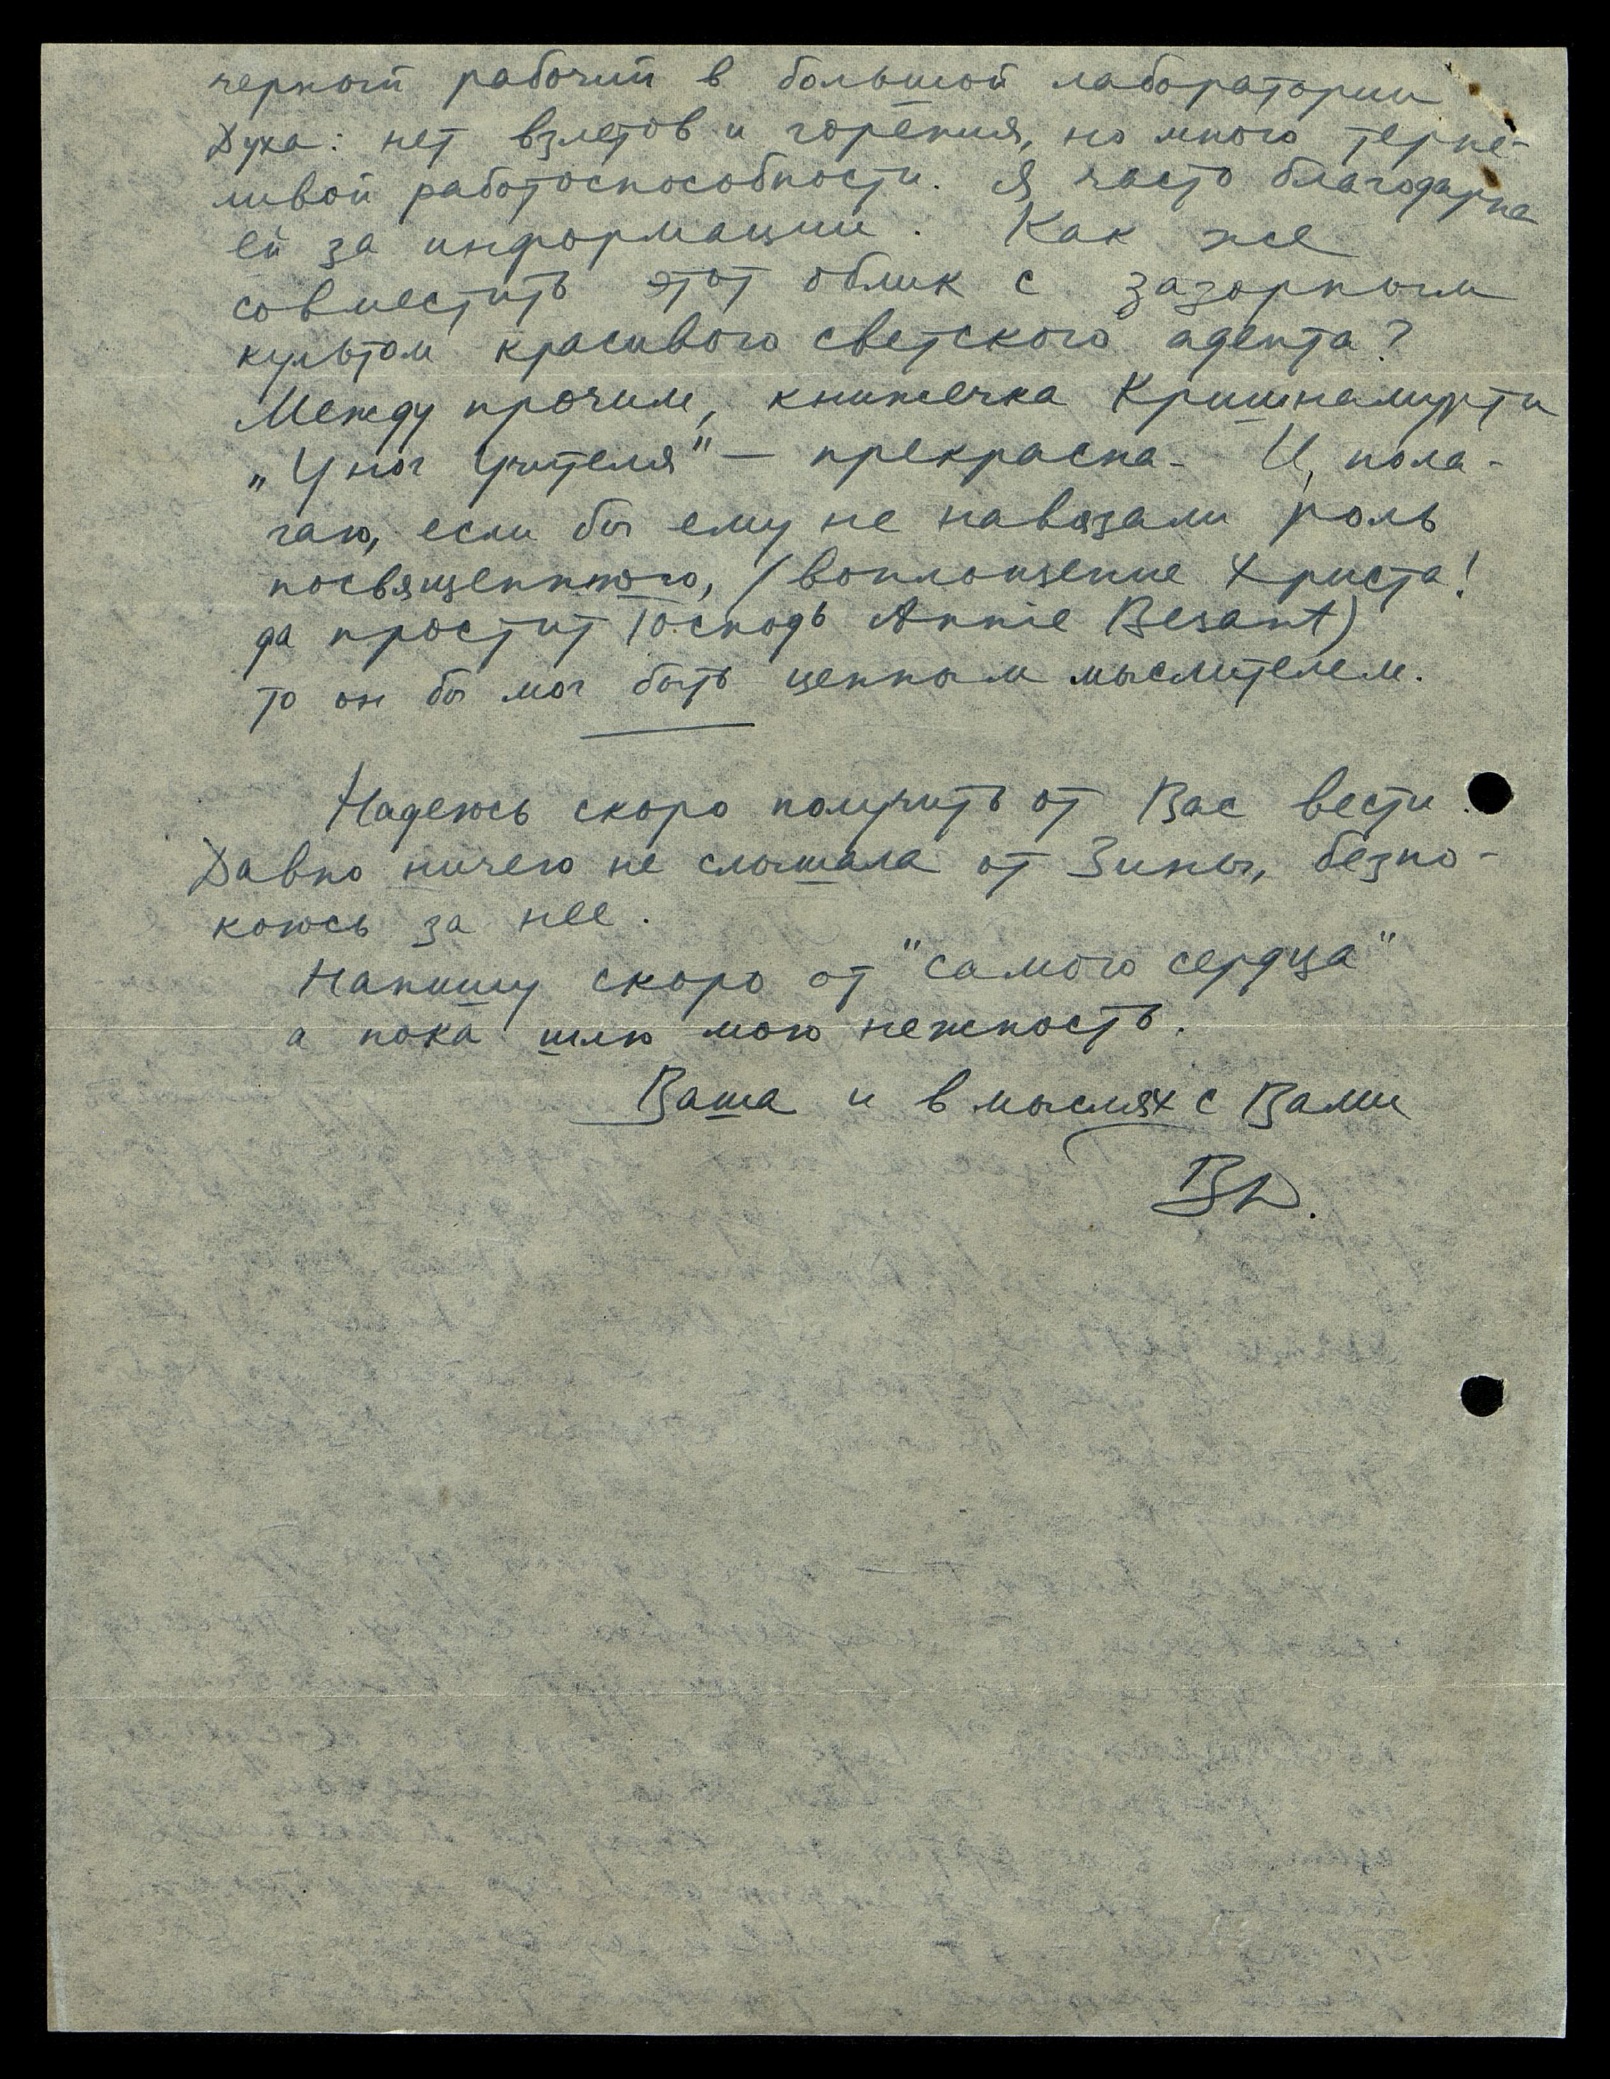 черный рабочий в большой лаборатории
Духа: нет взлетов и горения, но много терпе-
ливой работоспособности. Я часто благодарна
ей за информации. Как же
совместить этот облик с зазорным
культом красивого светского адепта?
Между прочим, книжечка Кришнамурти
„У ног Учителя" — прекрасна. И, пола-
гаю, если бы ему не навязали роль
посвященного, (воплощение Христа!
да простит Господь Annie Besant)
то он бы мог быть ценным мыслителем.
Надеюсь скоро получить от Вас вести.
Давно ничего не слышала от Зины, безпо-
коюсь за нее.
Напишу скоро от "самого сердца"
а пока шлю мою нежность.
Ваша и в мыслях с Вами
ВД.